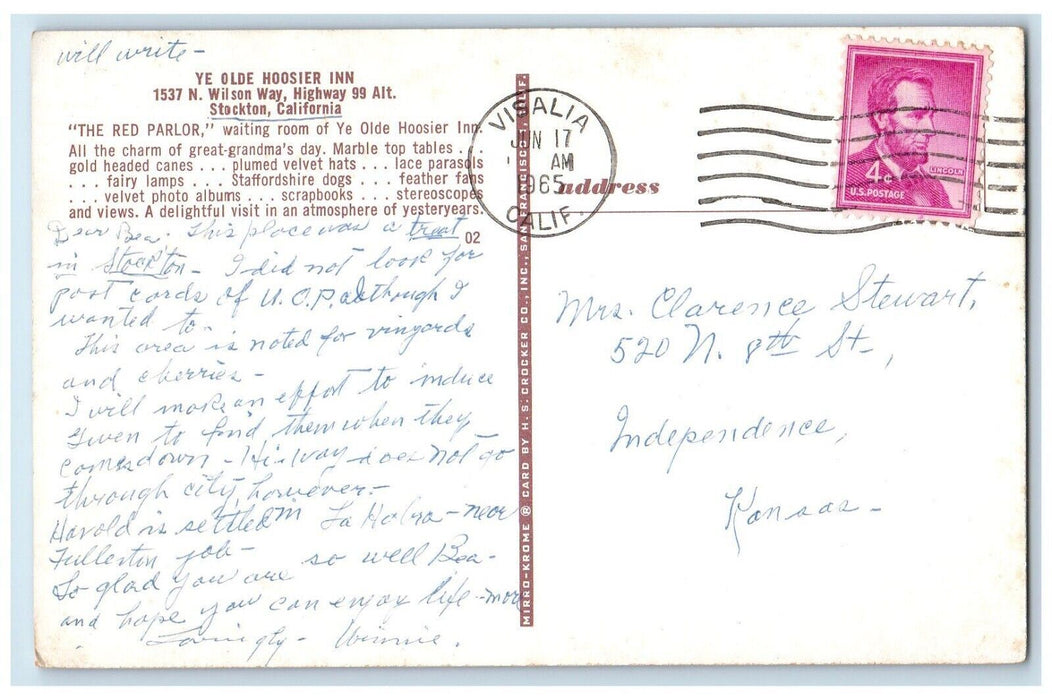 will write -
YE OLDE HOOSIER INN
1537 N. Wilson Way, Highway 99 Alt.
Stockton, California
"THE RED PARLOR," waiting room of Ye Olde Hoosier Inn.
All the charm of great-grandma's day. Marble top tables . . .
gold headed canes . . . plumed velvet hats . . . lace parasols
. . . . fairy lamps . . . Staffordshire dogs . . . feather fans
. . . . velvet photo albums . . . scrapbooks . . . stereoscopes
and views. A delightful visit in an atmosphere of yesteryears.
02
Dear Bea. This place was a treat
in Stockton - I did not look for
post cards of U.O.P. although I
wanted to -
This area is noted for vinyards
and cherries -
I will make an effort to induce
Gwen to find them when they
come down - Hi-way does not go
through city, however. -
Harold is settled in La Habra - near
Fullerton job -
So glad you are so well Bea -
and hope you can enjoy life - more
Lovingly - Winnie.
MIRRO-KROME ® CARD BY H. S. CROCKER CO., INC., SAN FRANCISCO, CALIF.
VISALIA
JUN 17
AM
1965
CALIF.
address
4c
LINCOLN
U.S. POSTAGE
Mrs. Clarence Stewart,
520 N. 8th St.,
Independence,
Kansas -